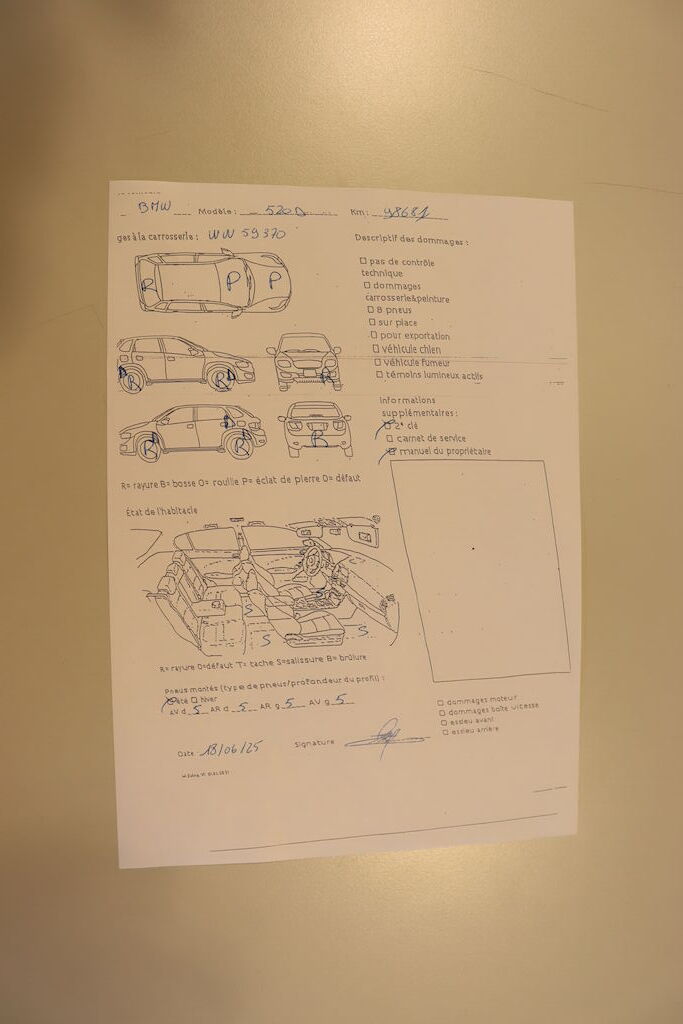 BMW Modèle : 520D Km : 98681
ges à la carrosserie : WW 59370
Descriptif des dommages :
pas de contrôle
technique
dommages
carrosserie&peinture
8 pneus
sur place
pour exportation
véhicule chien
véhicule fumeur
témoins lumineux actifs
R P P
B R R D R
R R B R
Informations
supplémentaires :
2° clé
carnet de service
manuel du propriétaire
R= rayure B= bosse O= rouille P= éclat de pierre D= défaut
État de l'habitacle
S S S S
R= rayure D=défaut T= tache S=salissure B= brûlure
Pneus montés (type de pneus/profondeur du profil) :
été hiver
AV d 5 AR d 5 AR g 5 AV g 5
dommages moteur
dommages boîte vitesse
essieu avant
essieu arrière
Date 18/06/25 Signature